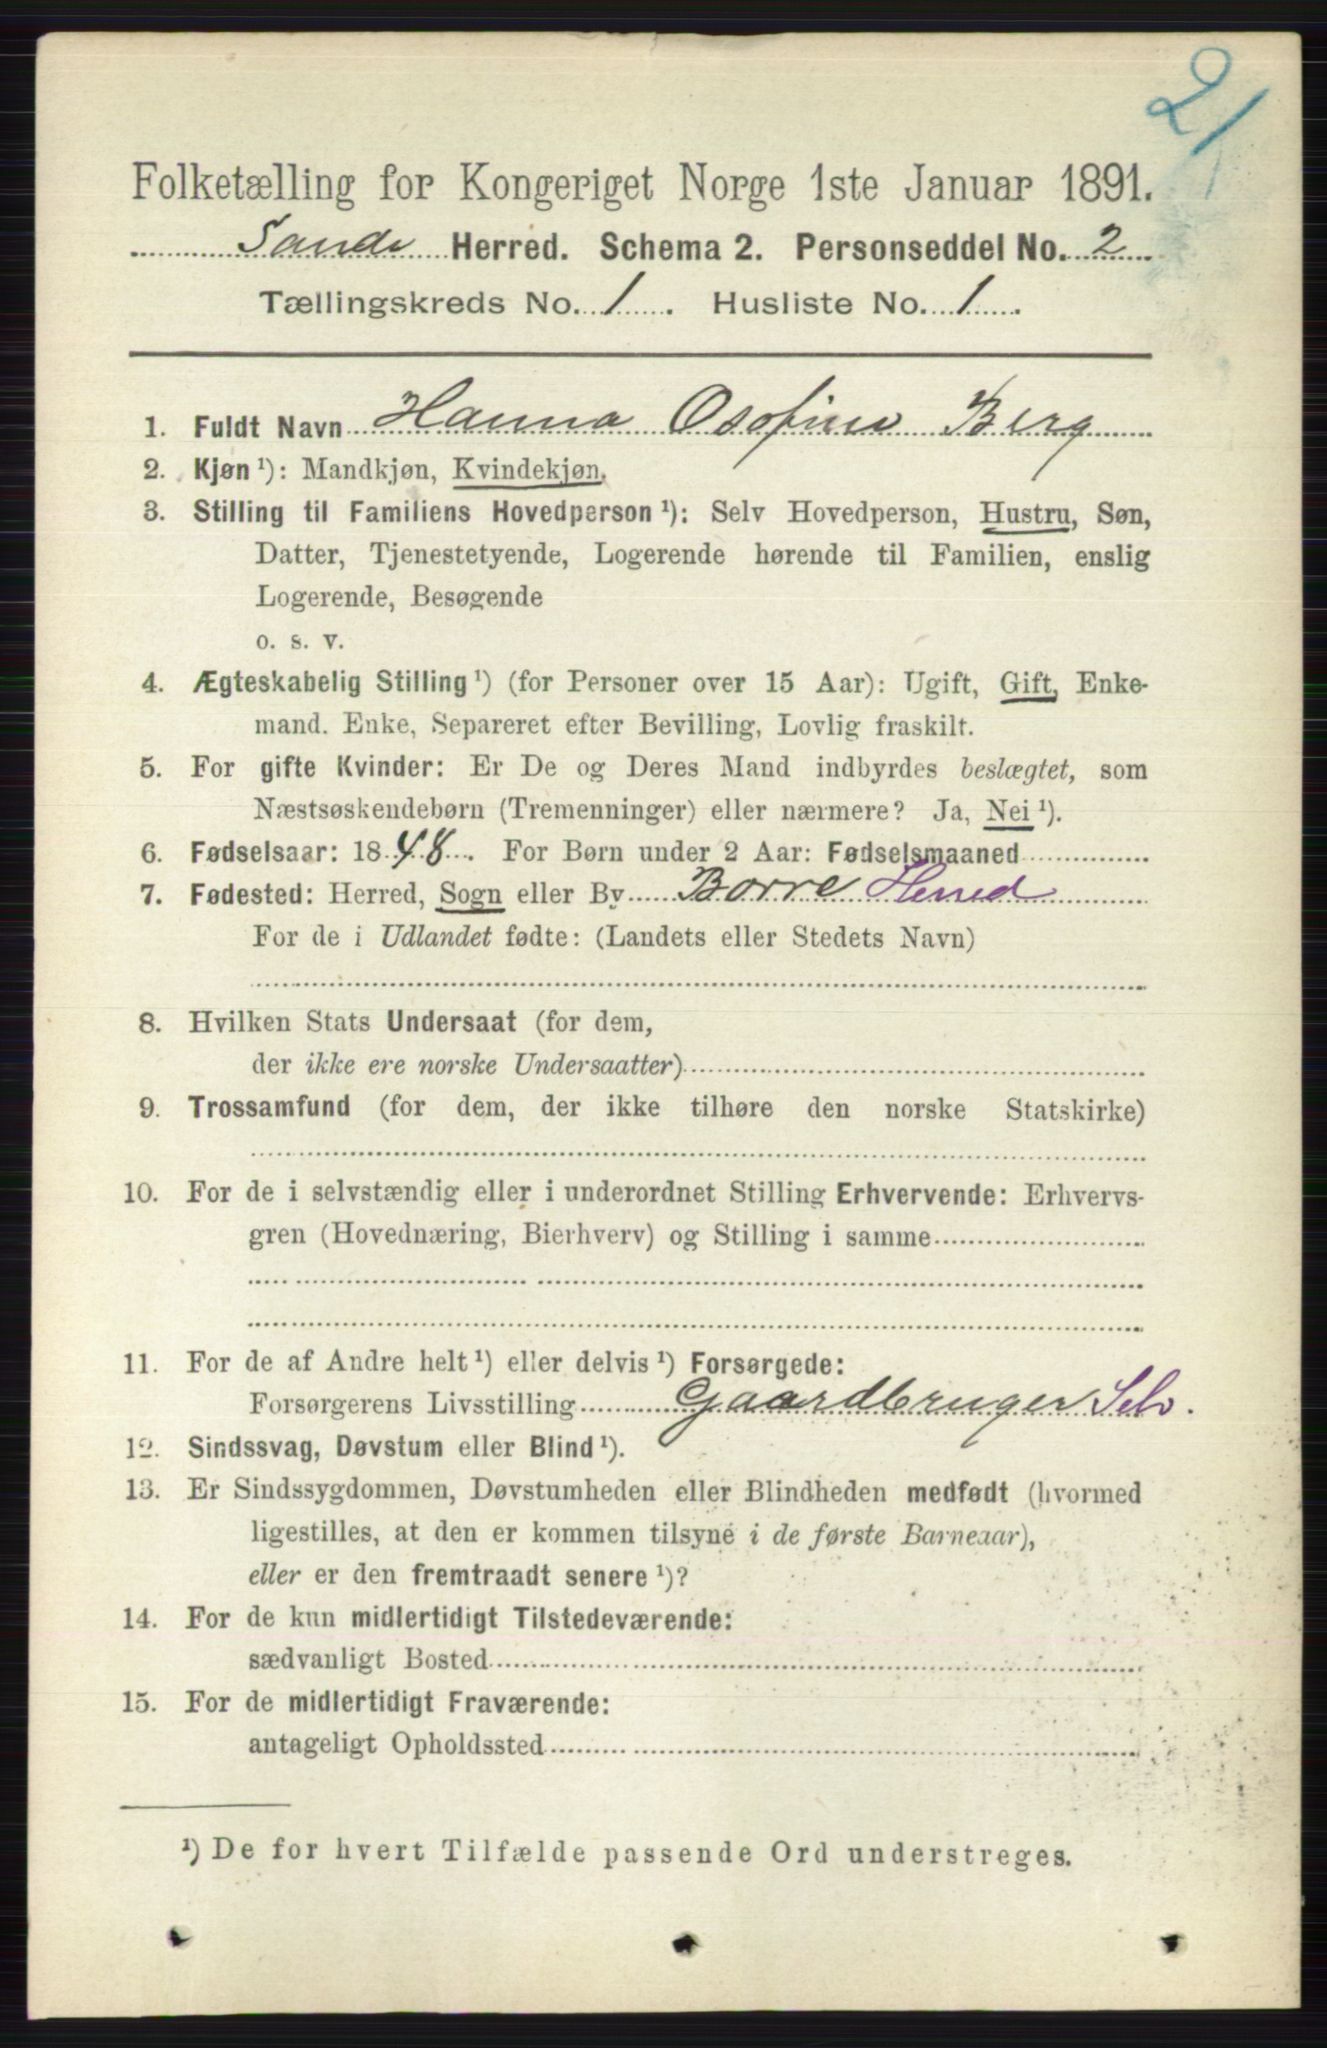 21
Folketælling for Kongeriget Norge 1ste Januar 1891.
Sande Herred. Schema 2. Personseddel No. 2
Tællingskreds No. 1. Husliste No. 1.
1. Fuldt Navn Hanna Osofine Berg
2. Kjøn ¹): Mandkjøn, Kvindekjøn.
3. Stilling til Familiens Hovedperson ¹): Selv Hovedperson, Hustru, Søn,
Datter, Tjenestetyende, Logerende hørende til Familien, enslig
Logerende, Besøgende
o. s. v.
4. Ægteskabelig Stilling ¹) (for Personer over 15 Aar): Ugift, Gift, Enke-
mand. Enke, Separeret efter Bevilling, Lovlig fraskilt.
5. For gifte Kvinder: Er De og Deres Mand indbyrdes beslægtet, som
Næstsøskendebørn (Tremenninger) eller nærmere? Ja, Nei ¹).
6. Fødselsaar: 1848. For Børn under 2 Aar: Fødselsmaaned
7. Fødested: Herred, Sogn eller By Borre Herred
For de i Udlandet fødte: (Landets eller Stedets Navn)
8. Hvilken Stats Undersaat (for dem,
der ikke ere norske Undersaatter)
9. Trossamfund (for dem, der ikke tilhøre den norske Statskirke)
10. For de i selvstændig eller i underordnet Stilling Erhvervende: Erhvervs-
gren (Hovednæring, Bierhverv) og Stilling i samme
11. For de af Andre helt ¹) eller delvis ¹) Forsørgede:
Forsørgerens Livsstilling Gaardbruger Selv.
12. Sindssvag, Døvstum eller Blind ¹).
13. Er Sindssygdommen, Døvstumheden eller Blindheden medfødt (hvormed
ligestilles, at den er kommen tilsyne i de første Barneaar),
eller er den fremtraadt senere ¹)?
14. For de kun midlertidigt Tilstedeværende:
sædvanligt Bosted
15. For de midlertidigt Fraværende:
antageligt Opholdssted
¹) De for hvert Tilfælde passende Ord understreges.